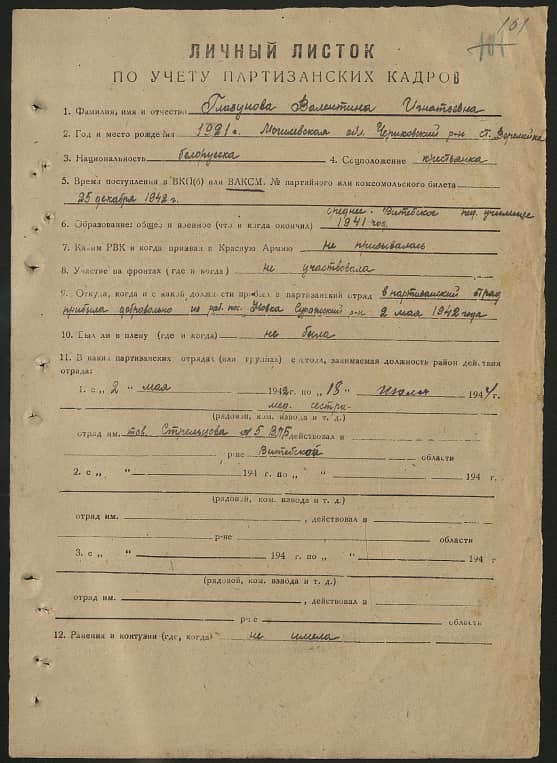 101
101
ЛИЧНЫЙ ЛИСТОК
ПО УЧЕТУ ПАРТИЗАНСКИХ КАДРОВ
1. Фамилия, имя и отчество Глазунова Валентина Игнатьевна
2. Год и место рождения 1921 г. Могилевская обл. Чериковский р-н ст. Веремейки
3. Национальность белорусска 4. Соцположение крестьянка
5. Время поступления в ВКП(б) или ВЛКСМ. № партийного или комсомольского билета
25 декабря 1942 г.
среднее. Витебское пед. училище
6. Образование: общее и военное (что и когда окончил) 1941 год.
7. Каким РВК и когда призван в Красную Армию не призывалась
8. Участие на фронтах (где и когда) не участвовала
9. Откуда, когда и с какой должности прибыл в партизанский отряд в партизанский отряд
прибыла добровольно из раб. пос. Суражский р-н 2 мая 1942 года
10. Был ли в плену (где и когда) не была
11. В каких партизанских отрядах (или группах) состоял, занимаемая должность район действия
отряда:
1. с „ 2 “ мая 1942 г. по „ 18 “ июля 1944 г.
мед. сестра
(рядовой, ком. взвода и т. д.)
отряд им. тов. Стрельцова № 5 ВПБ действовал в
р-не Витебской области
2. с „ “ 194 г. по „ “ 194 г.
(рядовой, ком. взвода и т. д.)
отряд им. , действовал в
р-не области
3. с „ “ 194 г. по „ “ 194 г
(рядовой, ком. взвода и т. д.)
отряд им. , действовал в
р-не область
12. Ранения и контузии (где, когда) не имела